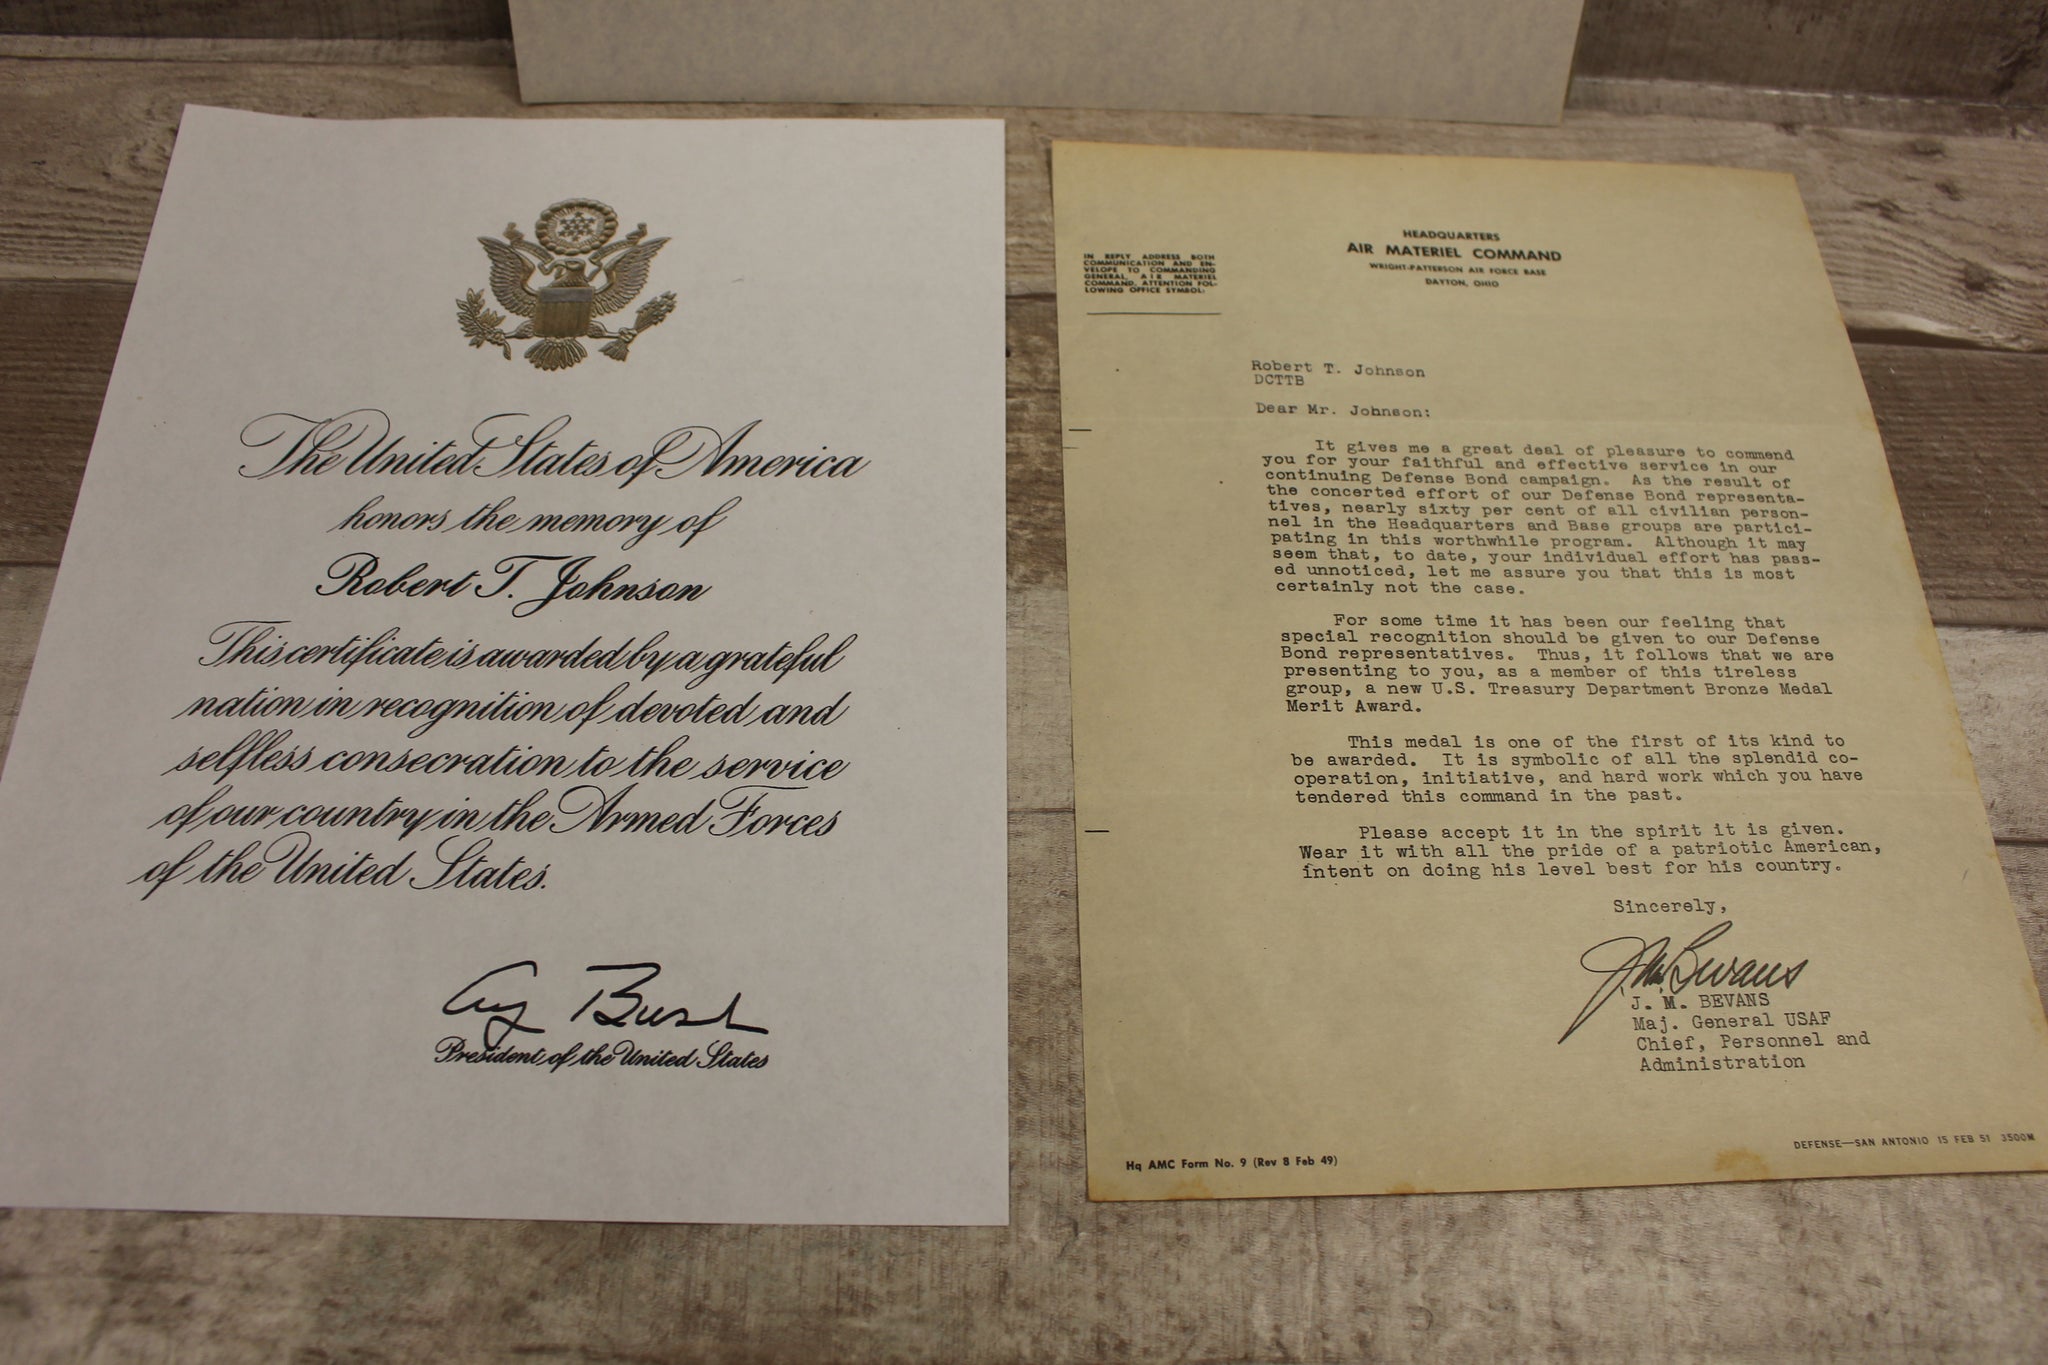 The United States of America
honors the memory of
Robert T. Johnson
This certificate is awarded by a grateful
nation in recognition of devoted and
selfless consecration to the service
of our country in the Armed Forces
of the United States.
Bush
President of the United States
HEADQUARTERS
AIR MATERIEL COMMAND
WRIGHT-PATTERSON AIR FORCE BASE
DAYTON, OHIO
IN REPLY ADDRESS BOTH
COMMUNICATION AND EN-
VELOPE TO COMMANDING
GENERAL, AIR MATERIEL
COMMAND, ATTENTION FOL-
LOWING OFFICE SYMBOL:
Robert T. Johnson
DCTTB
Dear Mr. Johnson:
It gives me a great deal of pleasure to commend
you for your faithful and effective service in our
continuing Defense Bond campaign. As the result of
the concerted effort of our Defense Bond representa-
tives, nearly sixty per cent of all civilian person-
nel in the Headquarters and Base groups are partici-
pating in this worthwhile program. Although it may
seem that, to date, your individual effort has pass-
ed unnoticed, let me assure you that this is most
certainly not the case.
For some time it has been our feeling that
special recognition should be given to our Defense
Bond representatives. Thus, it follows that we are
presenting to you, as a member of this tireless
group, a new U.S. Treasury Department Bronze Medal
Merit Award.
This medal is one of the first of its kind to
be awarded. It is symbolic of all the splendid co-
operation, initiative, and hard work which you have
tendered this command in the past.
Please accept it in the spirit it is given.
Wear it with all the pride of a patriotic American,
intent on doing his level best for his country.
Sincerely,
J.M. Bevans
J. M. BEVANS
Maj. General USAF
Chief, Personnel and
Administration
Hq AMC Form No. 9 (Rev 8 Feb 49)
DEFENSE—SAN ANTONIO 15 FEB 51 3500M